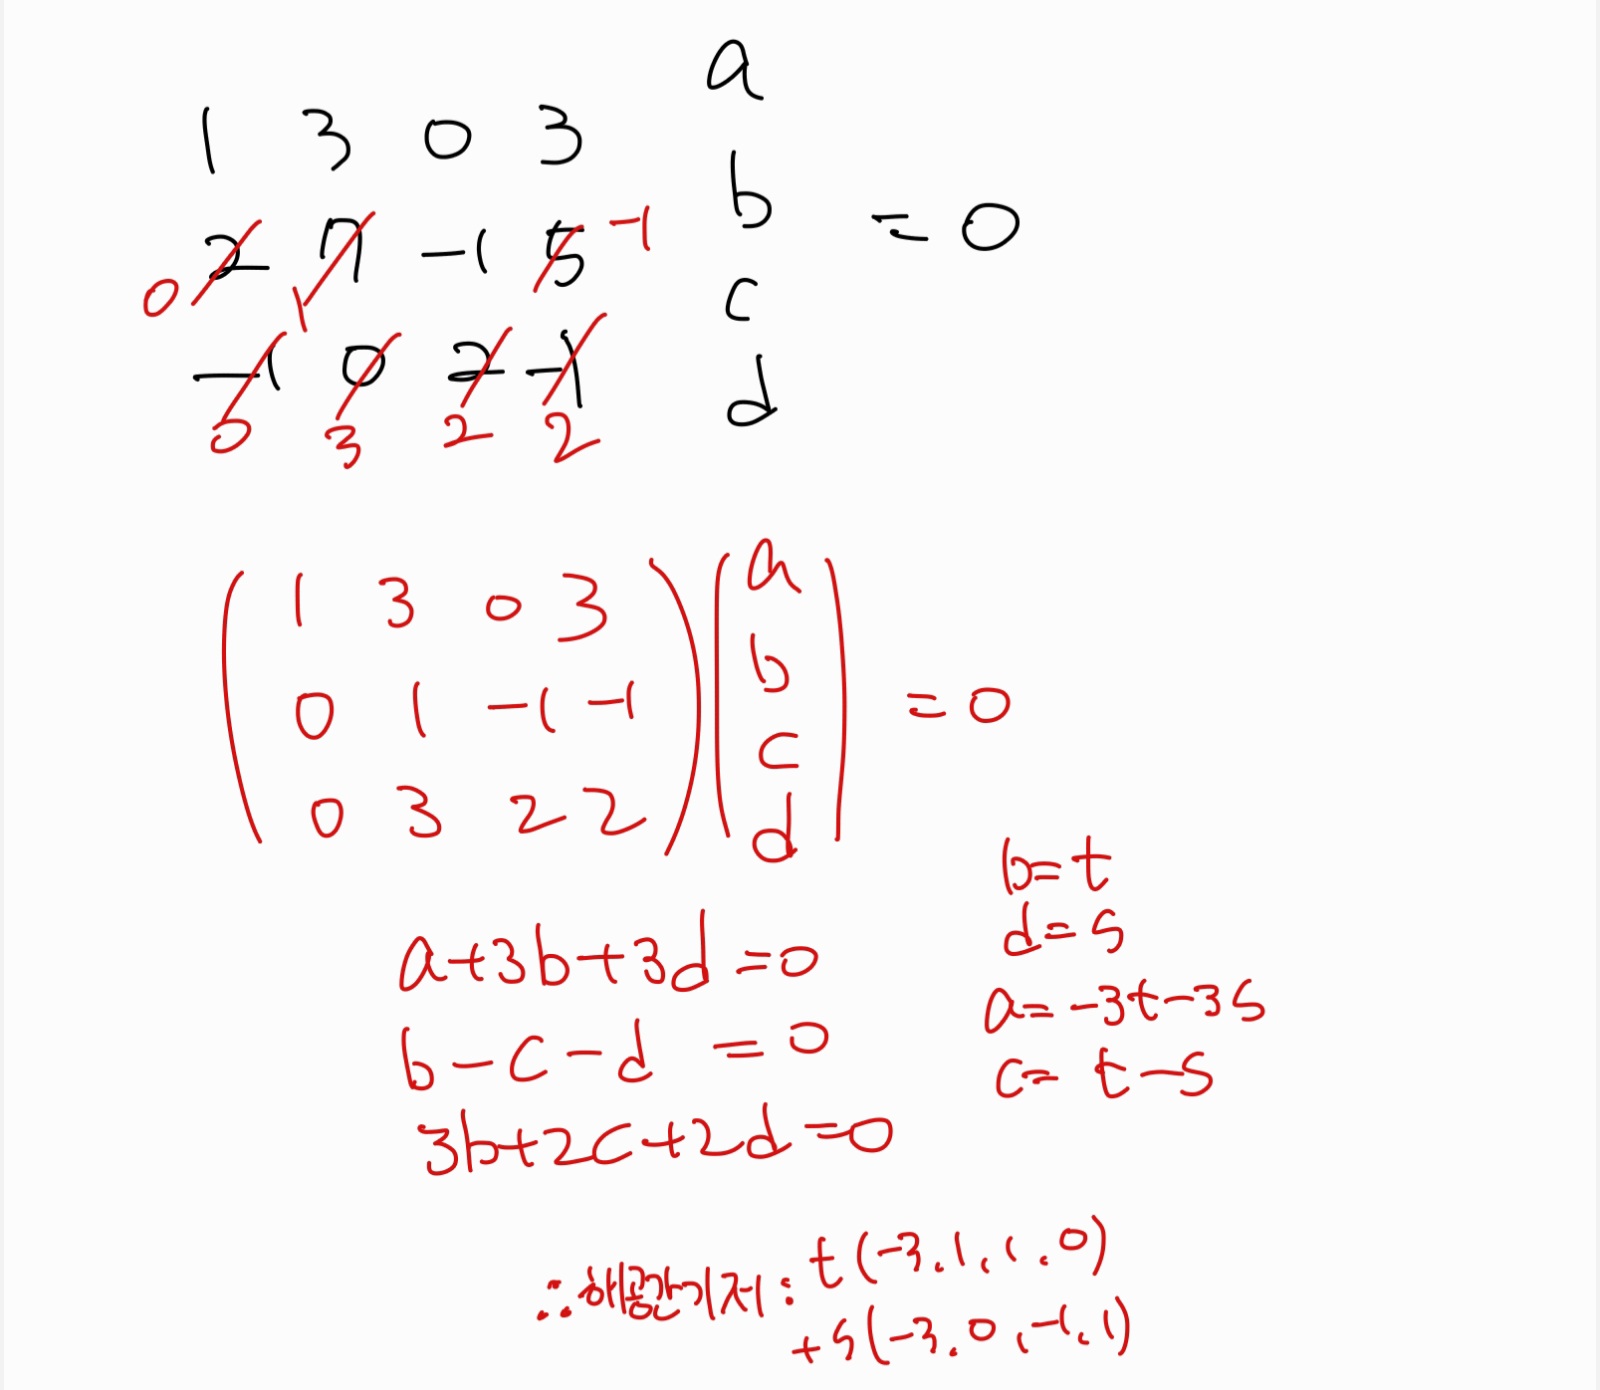 a
1 3 0 3
b
2 7 -1 5 -1 = 0
0 1
c
-1 0 2 -1
d
0 3 2 2
1 3 0 3 a
0 1 -1 -1 b = 0
c
0 3 2 2 d
b=t
a+3b+3d=0 d=s
b-c-d =0 a=-3t-3s
3b+2c+2d=0 c= t-s
∴해공간기저: t(-3,1,1,0)
+s(-3,0,-1,1)